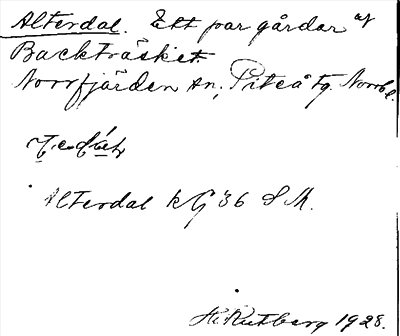 Alterdal. Ett par gårdar af
Backträsket.
Norrfjärden sn, Piteå tg. Norrb.l.
Alterdal kG 36 SM.
H. Rutberg 1928.